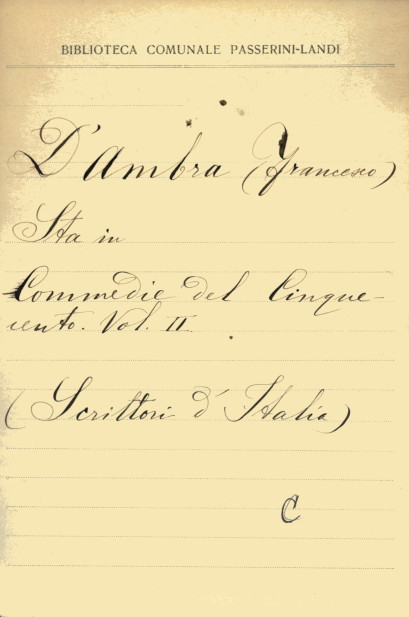 BIBLIOTECA COMUNALE PASSERINI-LANDI
D'Ambra (Francesco)
Sta in
Commedie del Cinque-
cento. Vol. II.
(Scrittori d'Italia)
C